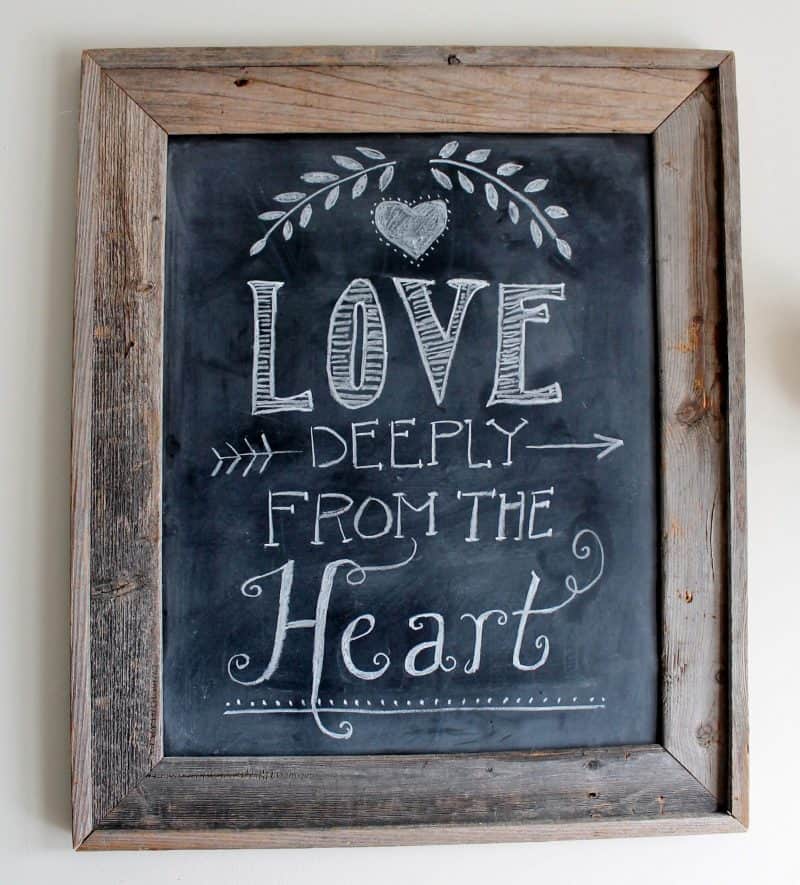 LOVE
DEEPLY
FROM THE
Heart